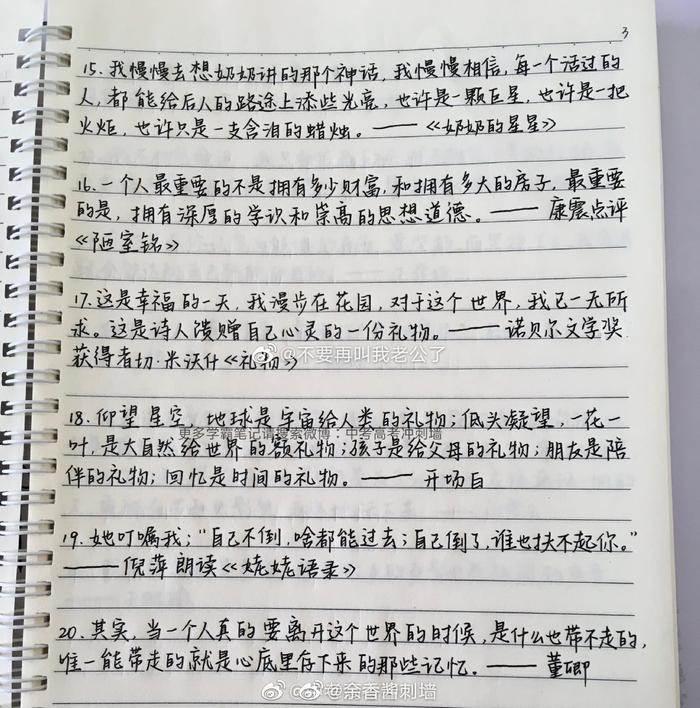 3
15. 我慢慢去想奶奶讲的那个神话，我慢慢相信，每一个活过的
人，都能给后人的路途上添些光亮，也许是一颗巨星，也许是一把
火炬，也许只是一支含泪的蜡烛。——《奶奶的星星》
16. 一个人最重要的不是拥有多少财富，和拥有多大的房子，最重要
的是，拥有深厚的学识和崇高的思想道德。——康震点评
《陋室铭》
17. 这是幸福的一天，我漫步在花园，对于这个世界，我已一无所
求。这是诗人馈赠自己心灵的一份礼物。——诺贝尔文学奖
获得者切·米沃什《礼物》
@不要再叫我老公了
18. 仰望星空，地球是宇宙给人类的礼物；低头凝望，一花一
更多学霸笔记请搜索微博：中考高考冲刺墙
叶，是大自然给世界的额礼物；孩子是给父母的礼物；朋友是陪
伴的礼物；回忆是时间的礼物。——开场白
19. 她叮嘱我；“自己不倒，啥都能过去；自己倒了，谁也扶不起你。”
——倪萍朗读《姥姥语录》
20. 其实，当一个人真的要离开这个世界的时候，是什么也带不走的，
唯一能带走的就是心底里存下来的那些记忆。——董卿